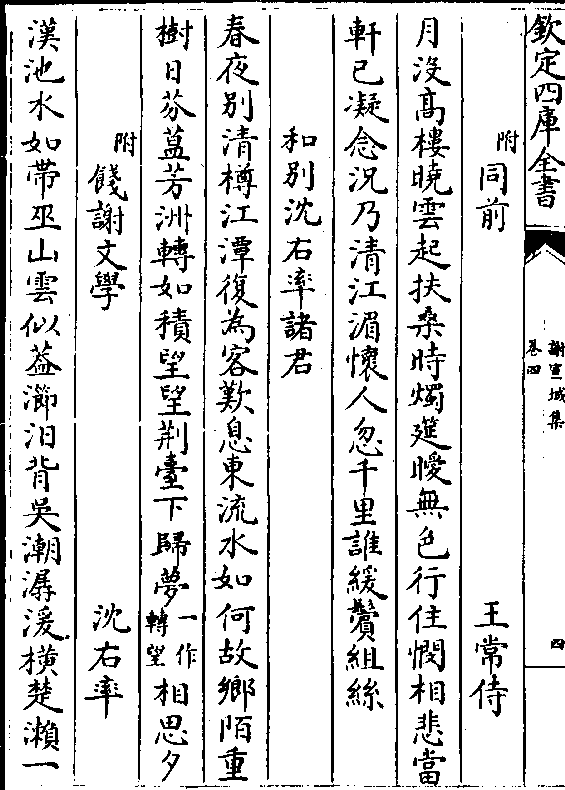 欽定四庫全書
謝宣城集
卷四
四
附同前
王常侍
月没高樓曉雲起扶桑時燭筵曖無色行住憫相悲當
軒已凝念況乃清江湄懷人忽千里誰緩鬢組絲
和別沈右率諸君
春夜别清樽江潭復為客歎息東流水如何故鄉陌重
樹日芬蒀芳洲轉如積望望荆臺下歸夢一作轉望相思夕
附餞謝文學
沈右率
漢池水如帶巫山雲似葢瀄汩背吳潮潺湲横楚瀨一